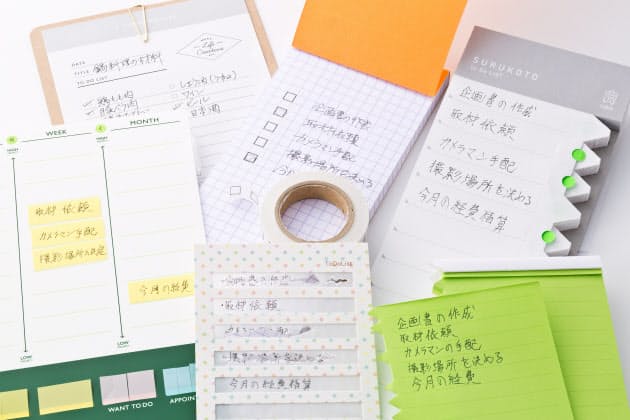 DATE
TITLE 鍋料理の材料
TO DO LIST
Life
Creations
鶏もも肉
しょうが
ワイン
ビール
日本酒
企画書の作成
取材依頼
カメラマン手配
撮影場所を決める
SURUKOTO
To Do List
企画書の作成
取材依頼
カメラマン手配
撮影場所を決める
今月の経費精算
WEEK
MONTH
HIGH
HIGH
取材依頼
カメラマン手配
撮影場所の決定
今月の経費
LOW
LOW
WANT TO DO
APPOIN
ToDoList
企画書の作成
・取材依頼
カメラマン手配
・撮影場所を決める
・今月の経費精算
企画書の作成
取材依頼
カメラマンの手配
撮影場所を決める
今月の経費